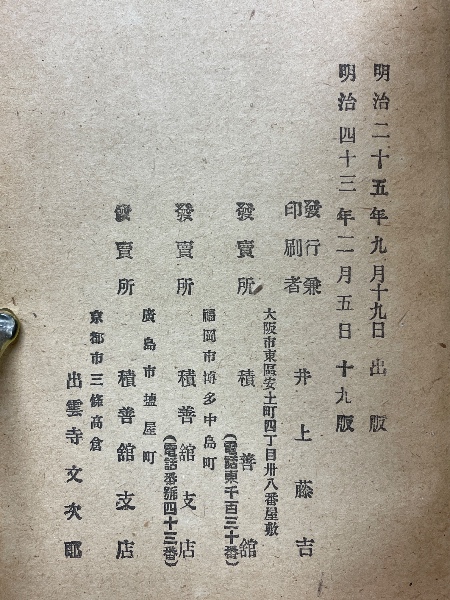 明治二十五年九月十九日出版
明治四十三年二月五日十九版
發行兼印刷者 井上藤吉
大阪市東區安土町四丁目卅八番屋敷
發賣所 積善舘
(電話東千百三十番)
福岡市博多中島町
發賣所 積善舘支店
(電話番號四十三番)
廣島市鹽屋町
發賣所 積善舘支店
京都市三條高倉
出雲寺文次郎